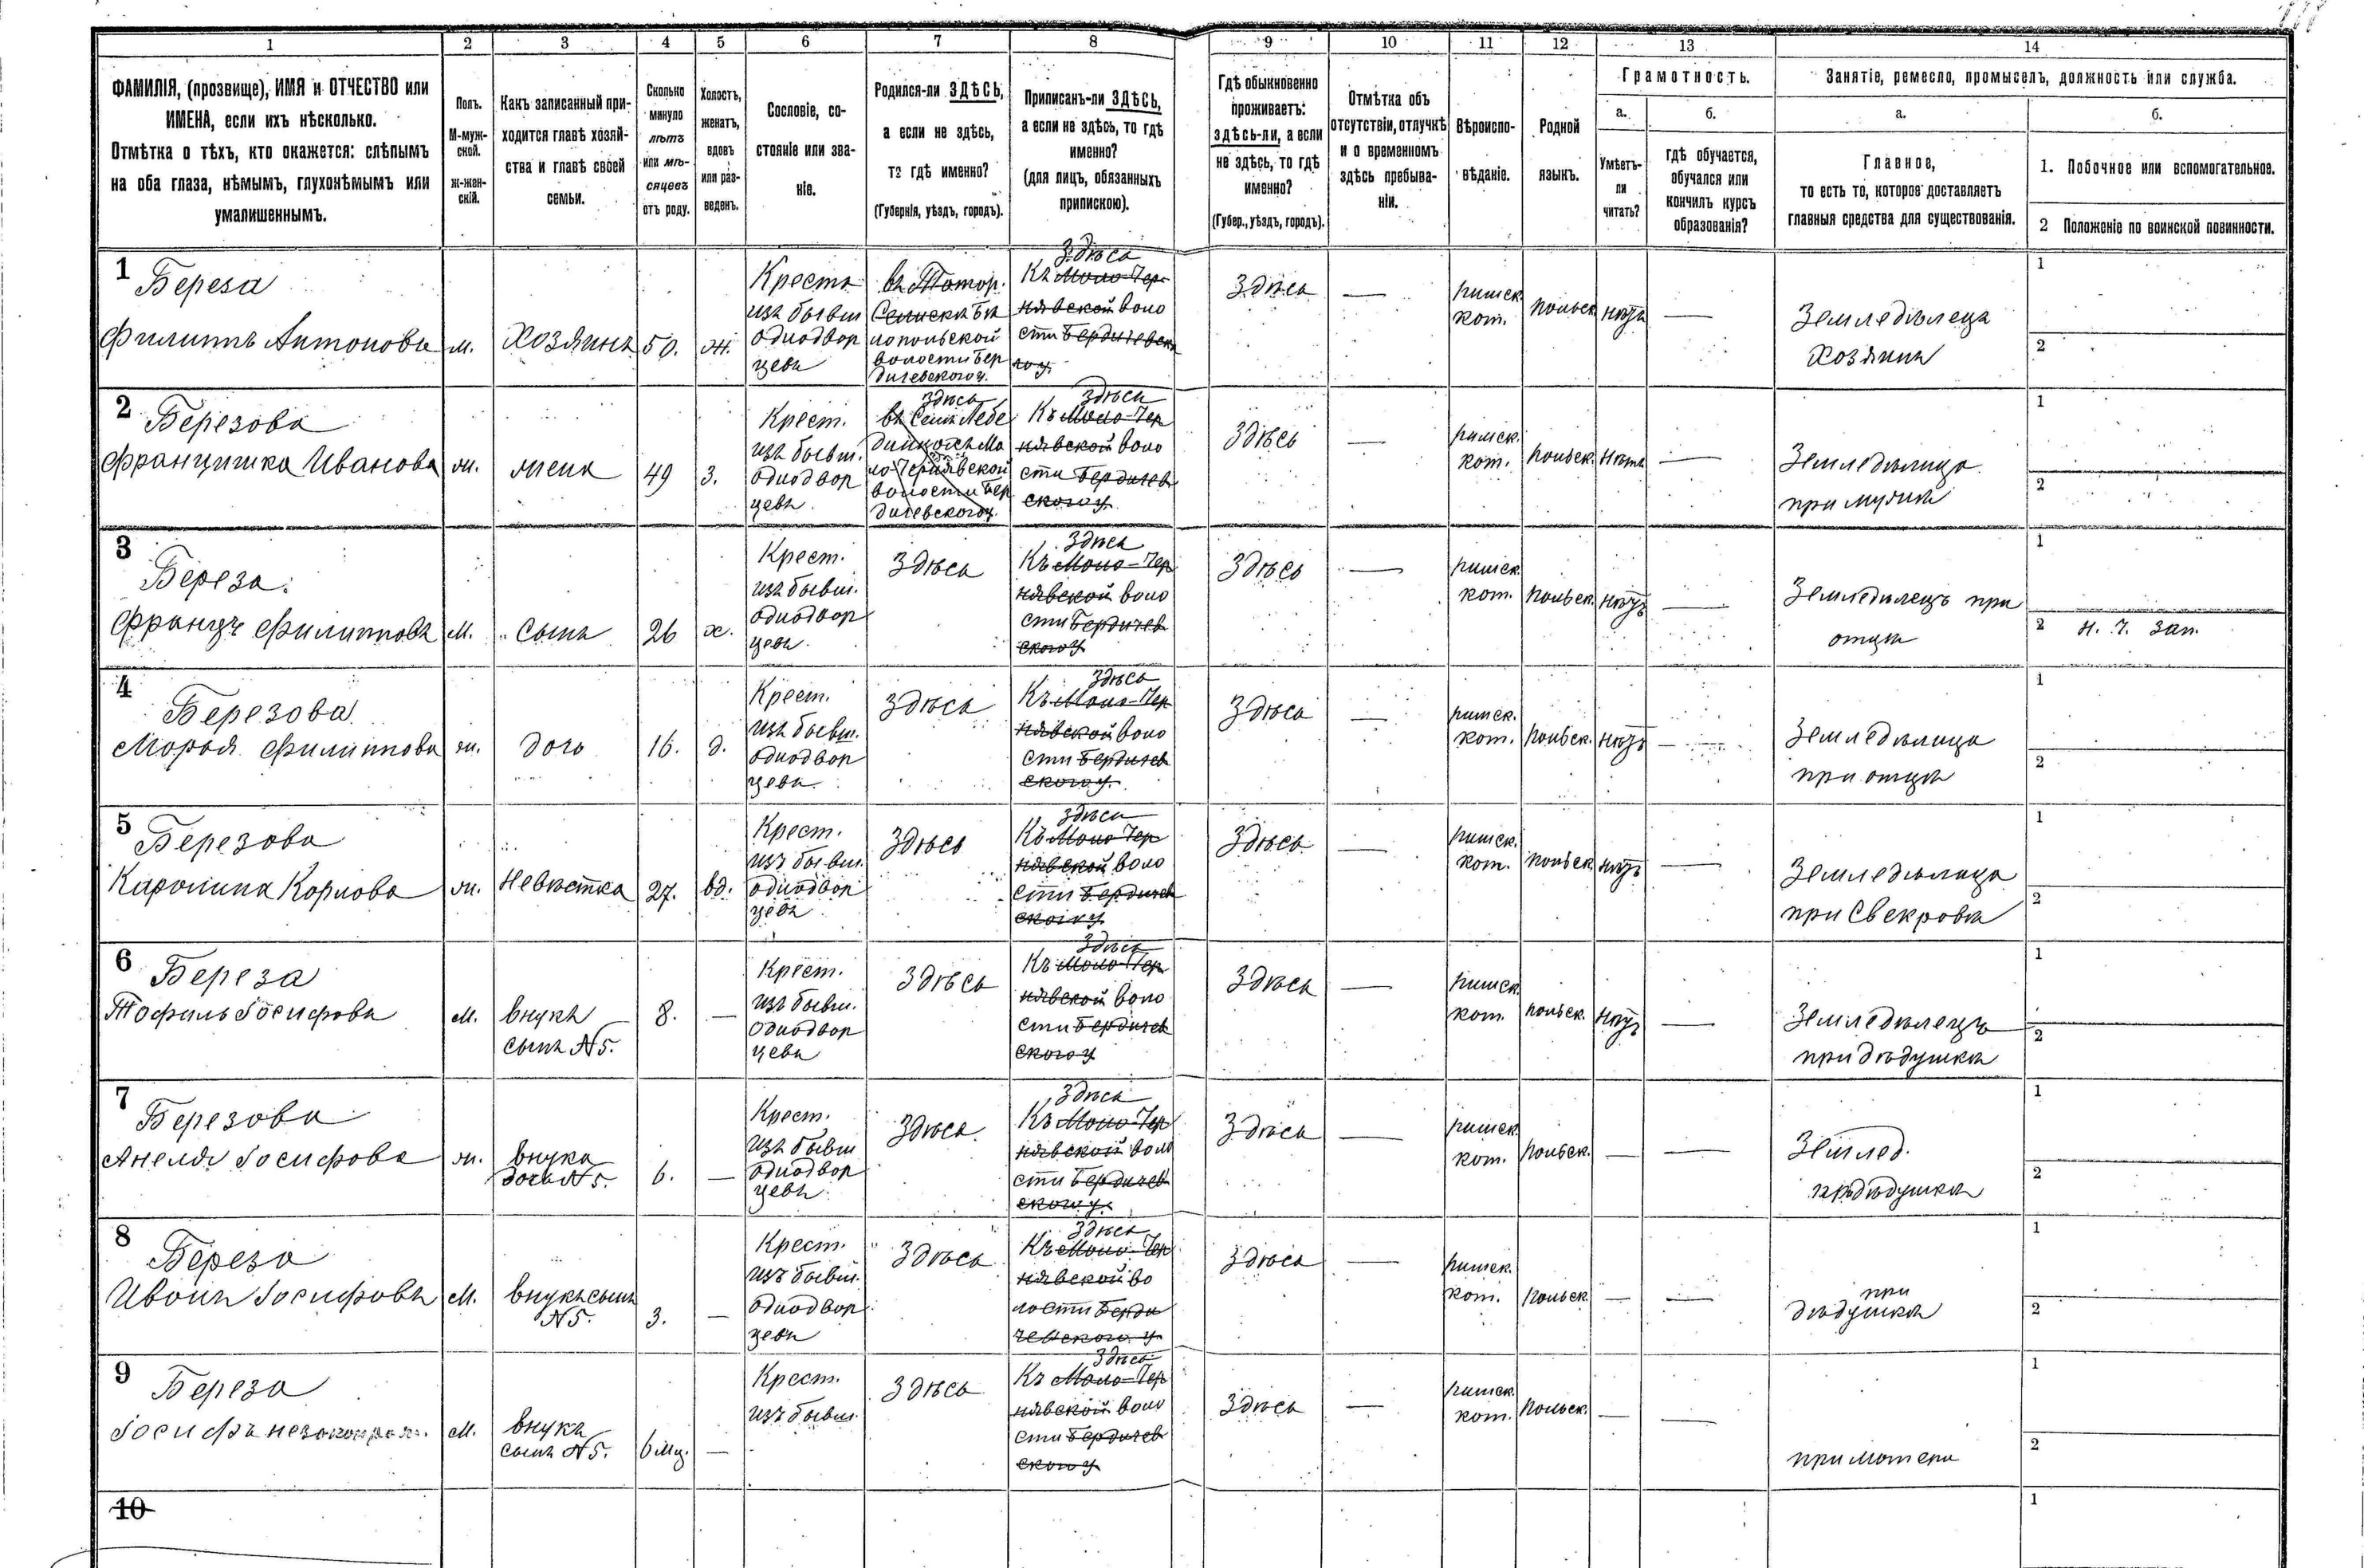 1 2 3 4 5 6 7 8 9 10 11 12 13 14
ФАМИЛІЯ, (прозвище), ИМЯ и ОТЧЕСТВО или
ИМЕНА, если ихъ нѣсколько.
Отмѣтка о тѣхъ, кто окажется: слѣпымъ
на оба глаза, нѣмымъ, глухонѣмымъ или
умалишеннымъ.
Полъ.
М-муж-
ской.
ж-жен-
скій.
Какъ записанный при-
ходится главѣ хозяй-
ства и главѣ своей
семьи.
Сколько
минуло
лѣтъ
или мѣ-
сяцевъ
отъ роду.
Холостъ,
женатъ,
вдовъ
или раз-
веденъ.
Сословіе, со-
стояніе или зва-
ніе.
Родился-ли ЗДѢСЬ,
а если не здѣсь,
то гдѣ именно?
(Губернія, уѣздъ, городъ).
Приписанъ-ли ЗДѢСЬ,
а если не здѣсь, то гдѣ
именно?
(для лицъ, обязанныхъ
припискою).
Гдѣ обыкновенно
проживаетъ:
здѣсь-ли, а если
не здѣсь, то гдѣ
именно?
(Губер., уѣздъ, городъ).
Отмѣтка объ
отсутствіи, отлучкѣ
и о временномъ
здѣсь пребыва-
ніи.
Вѣроиспо-
вѣданіе.
Родной
языкъ.
Грамотность.
а.
Умѣетъ-
ли
читать?
б.
гдѣ обучается,
обучался или
кончилъ курсъ
образованія?
Занятіе, ремесло, промыселъ, должность или служба.
а.
Главное,
то есть то, которое доставляетъ
главныя средства для существованія.
б.
1. Побочное или вспомогательное.
2 Положеніе по воинской повинности.
1
Береза
Филиппъ Антоновъ
м.
Хозяинъ
50.
ж.
Крестъ
изъ бывш
однодвор
цевъ
лопольской
волости Бер
дичевского у.
Здѣсь
Къ Мало-Чер
нявской воло
сти Бердичевск
Здѣсь
—
римск.
кат.
польск
нѣтъ
—
Земледѣлецъ
Хозяинъ
1
2
2
Березова
Францишка Иванова
ж.
жена
49
з.
Крест.
изъ бывш.
однодвор
цевъ
здѣсь
въ Селѣ Лебе
ло-Чернявской
волости Бер
дичевского у.
Здѣсь
Къ Мало-Чер
нявской воло
сти Бердичев
ского у.
Здѣсь
—
римск.
кат.
польск.
нѣтъ
—
Земледѣлица
при мужѣ
1
2
3
Береза
Францъ Филипповъ
м.
Сынъ
26
х.
Крест.
изъ бывш.
однодвор
цевъ
Здѣсь
Здѣсь
Къ Мало-Чер
нявской воло
сти Бердичев
ского у
Здѣсь
—
римск.
кат.
польск.
нѣтъ
—
Земледѣлецъ при
отцѣ
1
2 н. ч. зап.
4
Березова
Марья Филиппова
ж.
дочь
16.
д.
Крест.
изъ бывш.
однодвор
цевъ
Здѣсь
Здѣсь
Къ Мало-Чер
нявской воло
сти Бердичев
ского у.
Здѣсь
—
римск.
кат.
польск.
нѣтъ
—
Земледѣлица
при отцѣ
1
2
5
Березова
Каролина Карлова
ж.
Невѣстка
27.
вд.
Крест.
изъ бывш.
однодвор
цевъ
Здѣсь
Здѣсь
Къ Мало-Чер
нявской воло
сти Бердичев
ского у
Здѣсь
—
римск.
кат.
польск
нѣтъ
—
Земледѣлица
при Свекровѣ
1
2
6
Береза
Тофиль Іосифовъ
м.
внукъ
сынъ №5.
8.
—
Крест.
изъ бывш.
однодвор
цевъ
Здѣсь
Здѣсь
Къ Мало-Чер
нявской воло
сти Бердичев
ского у
Здѣсь
—
римск.
кат.
польск.
нѣтъ
—
Земледѣлецъ
при дѣдушкѣ
1
2
7
Березова
Анеля Іосифова
ж.
внука
дочь №5.
6.
—
Крест.
изъ бывш
однодвор
цевъ
Здѣсь
Здѣсь
Къ Мало-Чер
нявской воло
сти Бердичев
ского у.
Здѣсь
—
римск.
кат.
польск.
—
—
Землед.
при дѣдушкѣ
1
2
8
Береза
Иванъ Іосифовъ
м.
внукъ сынъ
№5.
3.
—
Крест.
изъ бывш.
однодвор
цевъ
Здѣсь
Здѣсь
Къ Мало-Чер
нявской во
лости Берди
чевского у
Здѣсь
—
римск.
кат.
польск
—
—
при
дѣдушкѣ
1
2
9
Береза
Іосифъ незаконрож.
м.
внукъ
сынъ №5.
6 мц.
—
Крест.
изъ бывш.
Здѣсь
Здѣсь
Къ Мало-Чер
нявской воло
сти Бердичев
ского у
Здѣсь
—
римск.
кат.
польск.
—
—
при матери
1
2
10
1